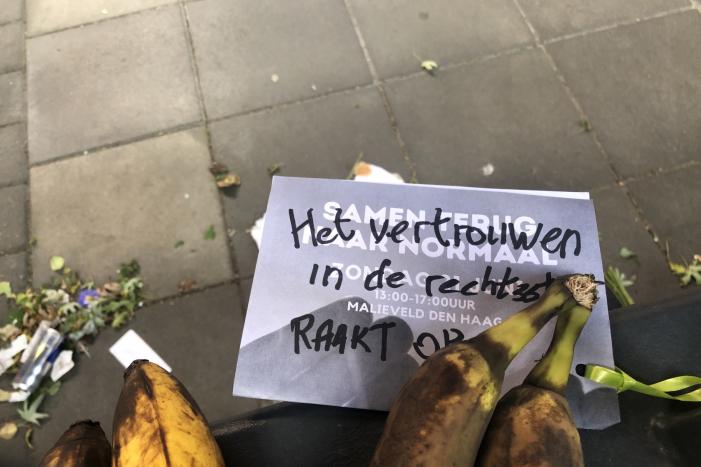 SAMEN TERUG
NAAR NORMAAL
Het vertrouwen
in de
13:00-17:00UUR
MALIEVELD DEN HAAG
RAAKT OP